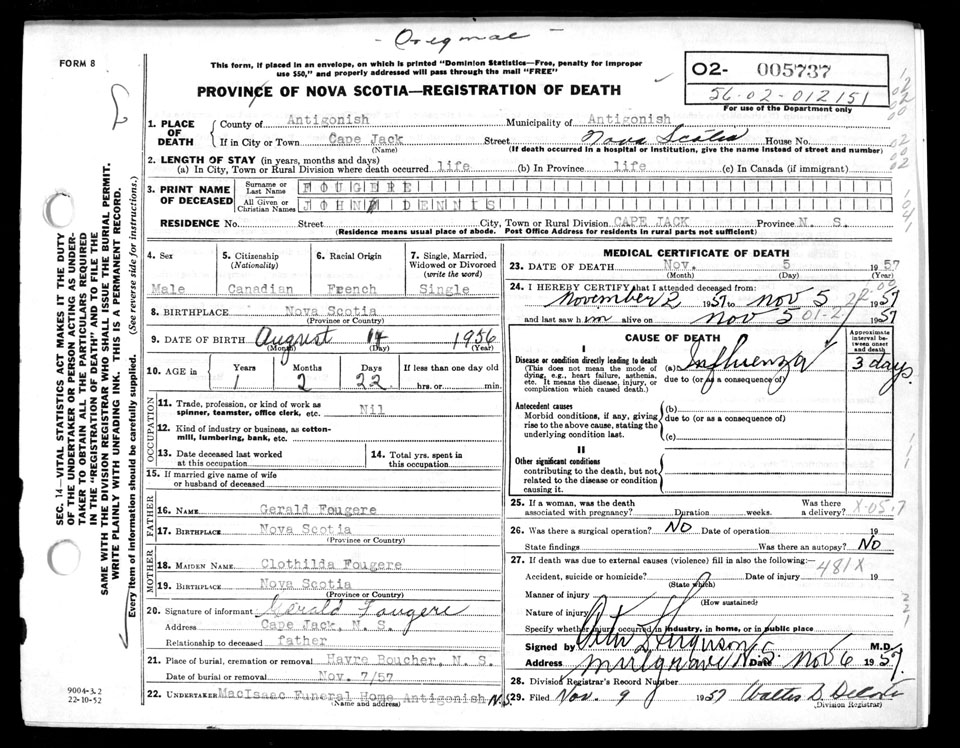 - Original -
FORM 8
This form, if placed in an envelope, on which is printed "Dominion Statistics—Free, penalty for improper
use $50," and properly addressed will pass through the mail "FREE"
PROVINCE OF NOVA SCOTIA—REGISTRATION OF DEATH
O2- 005737
56-02-012151
For use of the Department only
1. PLACE OF DEATH
County of Antigonish Municipality of Antigonish
If in City or Town Cape Jack Street Nova Scotia House No.
(Name) (If death occurred in a hospital or institution, give the name instead of street and number)
2. LENGTH OF STAY (in years, months and days)
(a) In City, Town or Rural Division where death occurred life (b) In Province life (c) In Canada (if immigrant)
3. PRINT NAME OF DECEASED
Surname or Last Name FOUGERE
All Given or Christian Names JOHN DENNIS
RESIDENCE No. Street City, Town or Rural Division CAPE JACK Province N. S.
(Residence means usual place of abode. Post Office Address for residents in rural parts not sufficient)
4. Sex 5. Citizenship (Nationality) 6. Racial Origin 7. Single, Married, Widowed or Divorced (write the word)
Male Canadian French Single
8. BIRTHPLACE Nova Scotia
(Province or County)
9. DATE OF BIRTH August 14 1956
(Month) (Day) (Year)
10. AGE Years Months Days If less than one day old
1 2 22 hrs. or min.
OCCUPATION
11. Trade, profession, or kind of work as
spinner, teamster, office clerk, etc. Nil
12. Kind of industry or business, as cotton-
mill, lumbering, bank, etc.
13. Date deceased last worked
at this occupation
14. Total yrs. spent in
this occupation
15. If married give name of wife
or husband of deceased
FATHER
16. NAME Gerald Fougere
17. BIRTHPLACE Nova Scotia
(Province or Country)
MOTHER
18. MAIDEN NAME Clothilda Fougere
19. BIRTHPLACE Nova Scotia
(Province or Country)
20. Signature of informant Gerald Fougere
Address Cape Jack, N. S.
Relationship to deceased father
21. Place of burial, cremation or removal Havre Boucher, N. S.
Date of burial or removal Nov. 7/57
22. UNDERTAKER MacIsaac Funeral Home Antigonish N.S.
(Name and address)
MEDICAL CERTIFICATE OF DEATH
23. DATE OF DEATH Nov. 5 1957
(Month) (Day) (Year)
24. I HEREBY CERTIFY that I attended deceased from:
November 2 1957 to Nov 5 1957
and last saw him alive on Nov 5 1957
CAUSE OF DEATH
Approximate interval between onset and death
I
Disease or condition directly leading to death
(This does not mean the mode of
dying, e.g., heart failure, asthenia,
etc. It means the disease, injury, or
complication which caused death.)
(a) Influenza 3 days.
due to (or as a consequence of)
Antecedent causes
Morbid conditions, if any, giving
rise to the above cause, stating the
underlying condition last.
(b)
due to (or as a consequence of)
(c)
II
Other significant conditions
contributing to the death, but not
related to the disease or condition
causing it.
25. If a woman, was the death
associated with pregnancy? Duration weeks. Was there a delivery?
26. Was there a surgical operation? NO Date of operation 19
State findings Was there an autopsy? NO
27. If death was due to external causes (violence) fill in also the following:—
481X
Accident, suicide or homicide? Date of injury 19
(State which)
Manner of injury
(How sustained)
Nature of injury
Specify whether injury occurred in industry, in home, or in public place
Signed by M.D.
Address Mulgrave N.S. Date Nov 6 1957
28. Division Registrar's Record Number
29. Filed Nov. 9 1957 Walter
(Division Registrar)
SEC. 14—VITAL STATISTICS ACT MAKES IT THE DUTY
OF THE UNDERTAKER OR PERSON ACTING AS UNDER-
TAKER TO OBTAIN ALL THE PARTICULARS REQUIRED
IN THE "REGISTRATION OF DEATH" AND TO FILE THE
SAME WITH THE DIVISION REGISTRAR WHO SHALL ISSUE THE BURIAL PERMIT.
WRITE PLAINLY WITH UNFADING INK. THIS IS A PERMANENT RECORD.
Every item of information should be carefully supplied. (See reverse side for instructions.)
9004-3.2
22-10-52